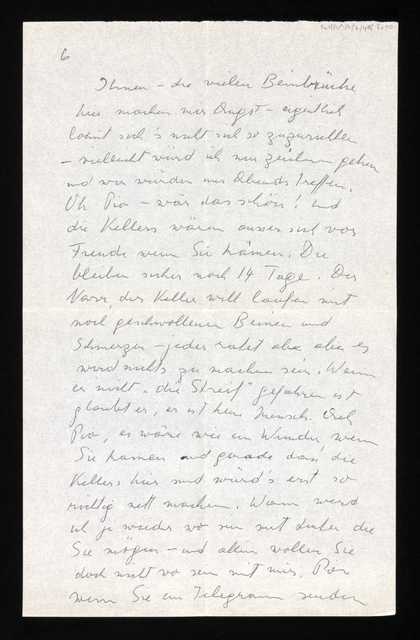 6
Ihnen – die vielen Beinbrüche
hier machen mir Angst – eigentlich
lohnt sich's nicht sich so zuzurichten
– vielleicht würd ich nur zeichnen gehen
und wir würden uns Abends treffen.
Oh Pia – wär das schön! und
die Kellers wären ausser sich vor
Freude wenn Sie kämen. Die
bleiben sicher noch 14 Tage. Der
Narr der Keller will laufen mit
noch geschwollenen Beinen und
Schmerzen – jeder ratet ab aber es
wird nichts zu machen sein. Wenn
er nicht „die Streif" gefahren ist
glaubt er, er ist kein Mensch. Ach
Pia, es wäre wie ein Wunder, wenn
Sie kämen und gerade dass die
Kellers hier sind würd's erst so
richtig nett machen. Wann werd
ich je wieder wo sein mit Leuten die
Sie mögen – und allein wollen Sie
doch nicht wo sein mit mir. Pia
wenn Sie ein Telegramm senden